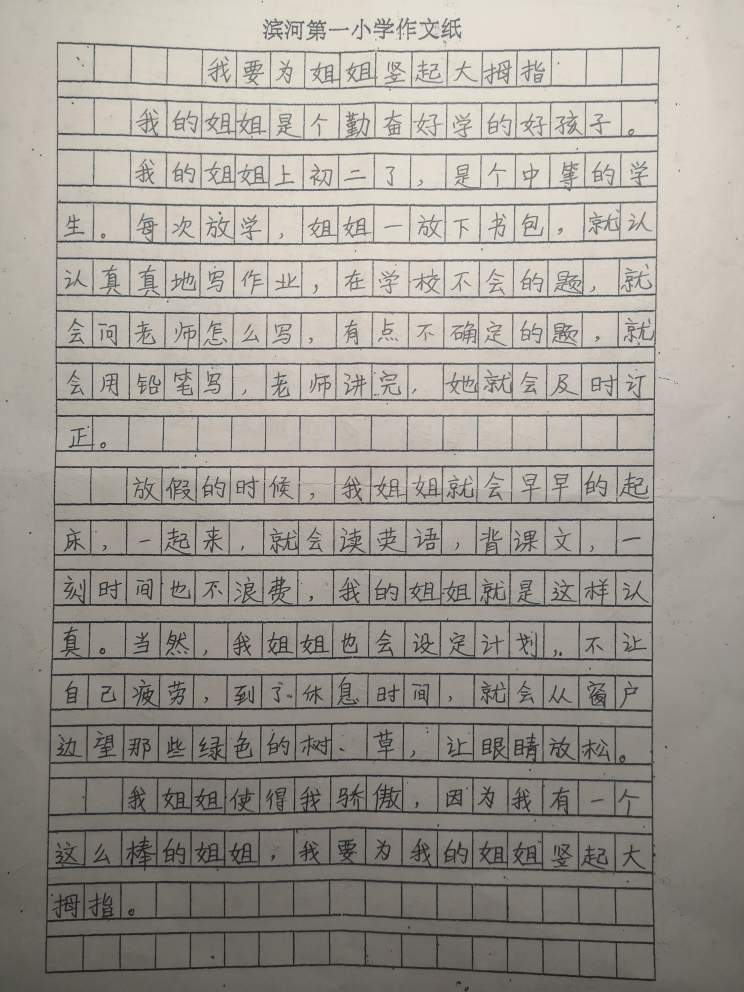 滨河第一小学作文纸
我要为姐姐竖起大拇指
我的姐姐是个勤奋好学的好孩子。
我的姐姐上初二了，是个中等的学
生。每次放学，姐姐一放下书包，就认
认真真地写作业，在学校不会的题，就
会问老师怎么写，有点不确定的题，就
会用铅笔写，老师讲完，她就会及时订
正。
放假的时候，我姐姐就会早早的起
床，一起来，就会读英语，背课文，一
刻时间也不浪费，我的姐姐就是这样认
真。当然，我姐姐也会设定计划，不让
自己疲劳，到了休息时间，就会从窗户
边望那些绿色的树、草，让眼睛放松。
我姐姐使得我骄傲，因为我有一个
这么棒的姐姐，我要为我的姐姐竖起大
拇指。